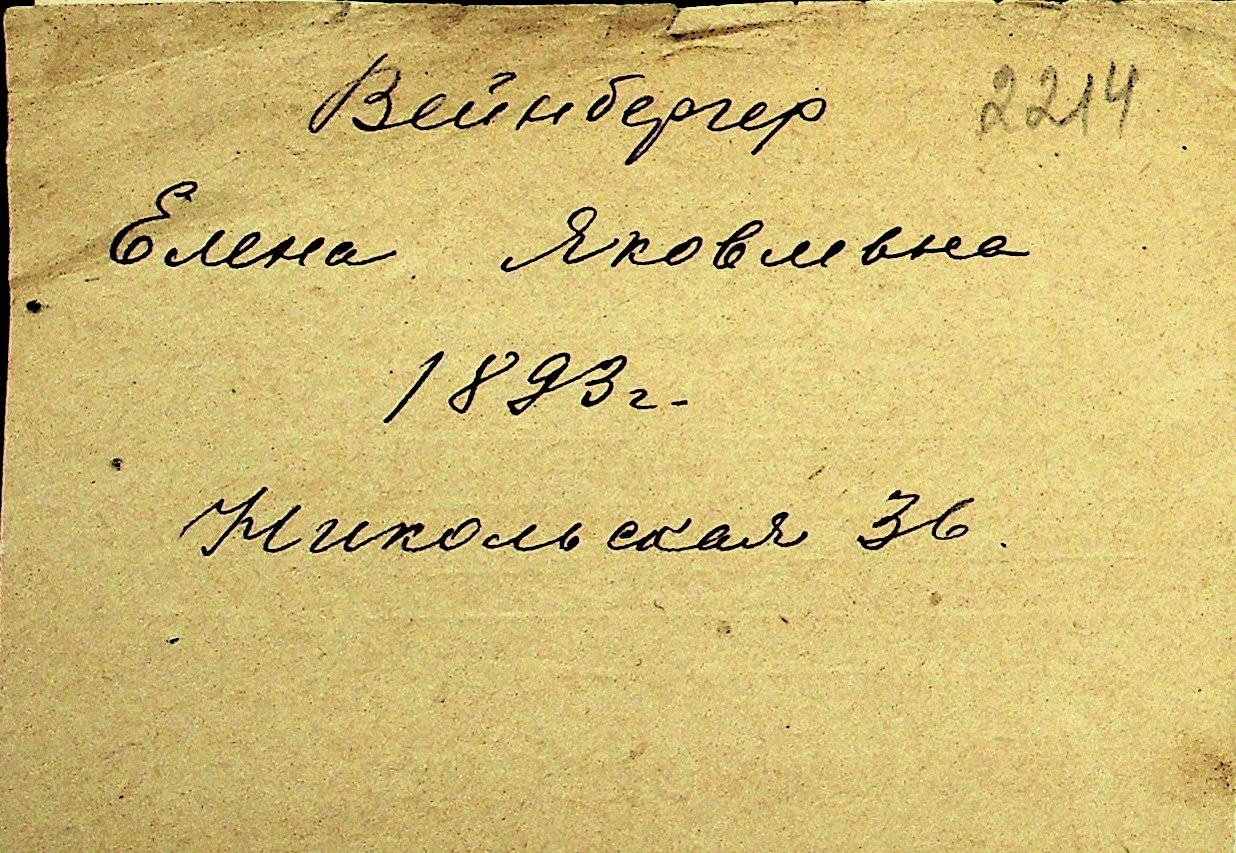 Вейнбергер 2214
Елена Яковлевна
1893г.
Никольская 36.